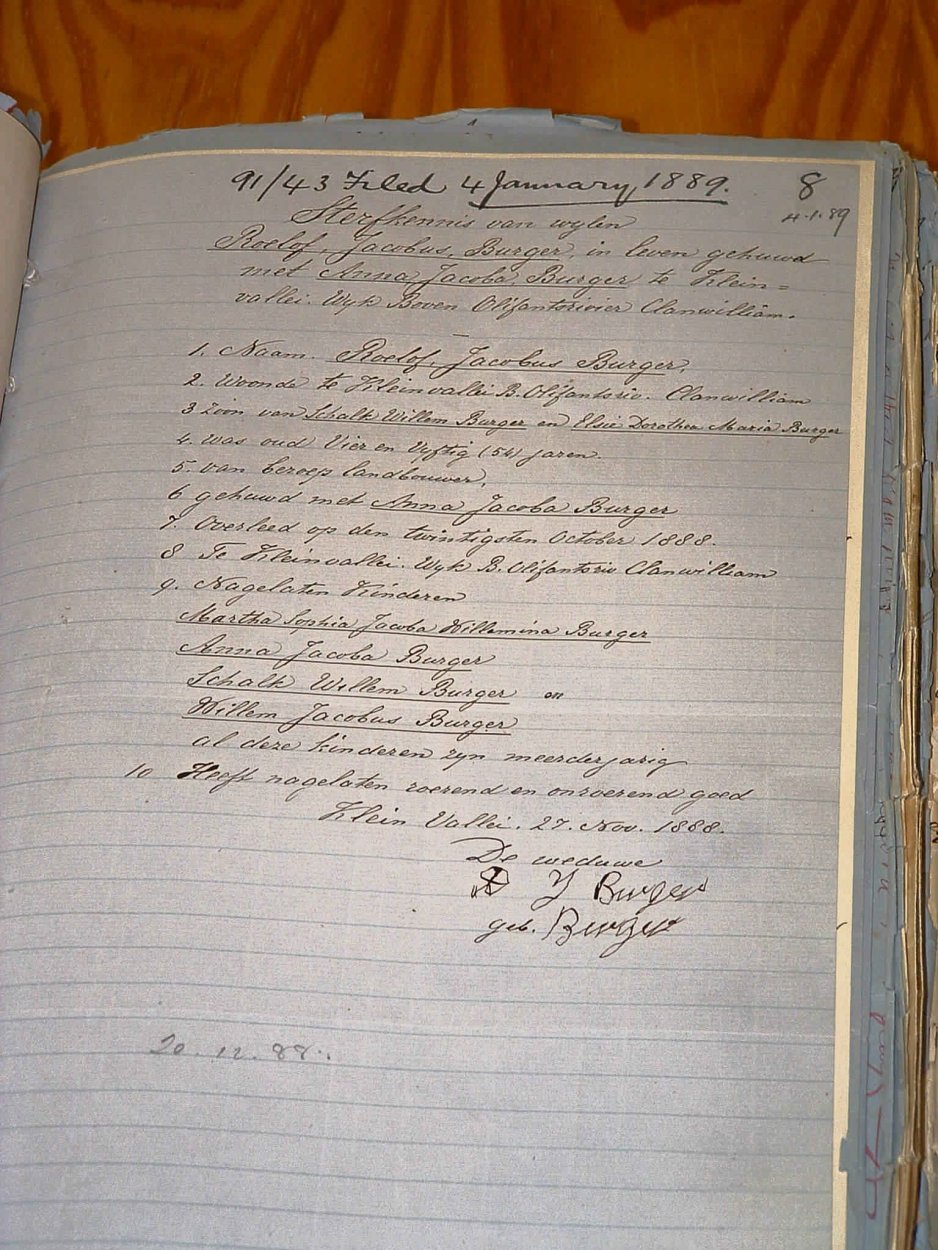 91/43 Filed 4 January, 1889. 8
4.1.89
Sterfkennis van wylen
Roelof, Jacobus, Burger, in leven gehuwd
met Anna Jacoba Burger te Klein=
vallei. Wyk Boven Olifantsrivier Clanwilliam.
1. Naam. Roelof, Jacobus Burger,
2. Woonde te Kleinvallei B. Olifantsriv. Clanwilliam
3 Zoon van Schalk Willem Burger en Elsie Dorothea Maria Burger
4. was oud Vier en Vyftig (54) jaren.
5. van beroep landbouwer,
6 gehuwd met Anna Jacoba Burger
7. Overleed op den twintigsten October 1888.
8 Te Kleinvallei. Wyk B. Olifantsriv Clanwilliam
9. Nagelaten Kinderen
Martha Sophia Jacoba Willemina Burger
Anna Jacoba Burger
Schalk Willem Burger en
Willem Jacobus Burger
al deze kinderen zyn meerderjarig
10 Heeft nagelaten roerend en onroerend goed
Klein Vallei. 27. Nov. 1888.
De weduwe
J Burger
geb. Burger
20.12.88.